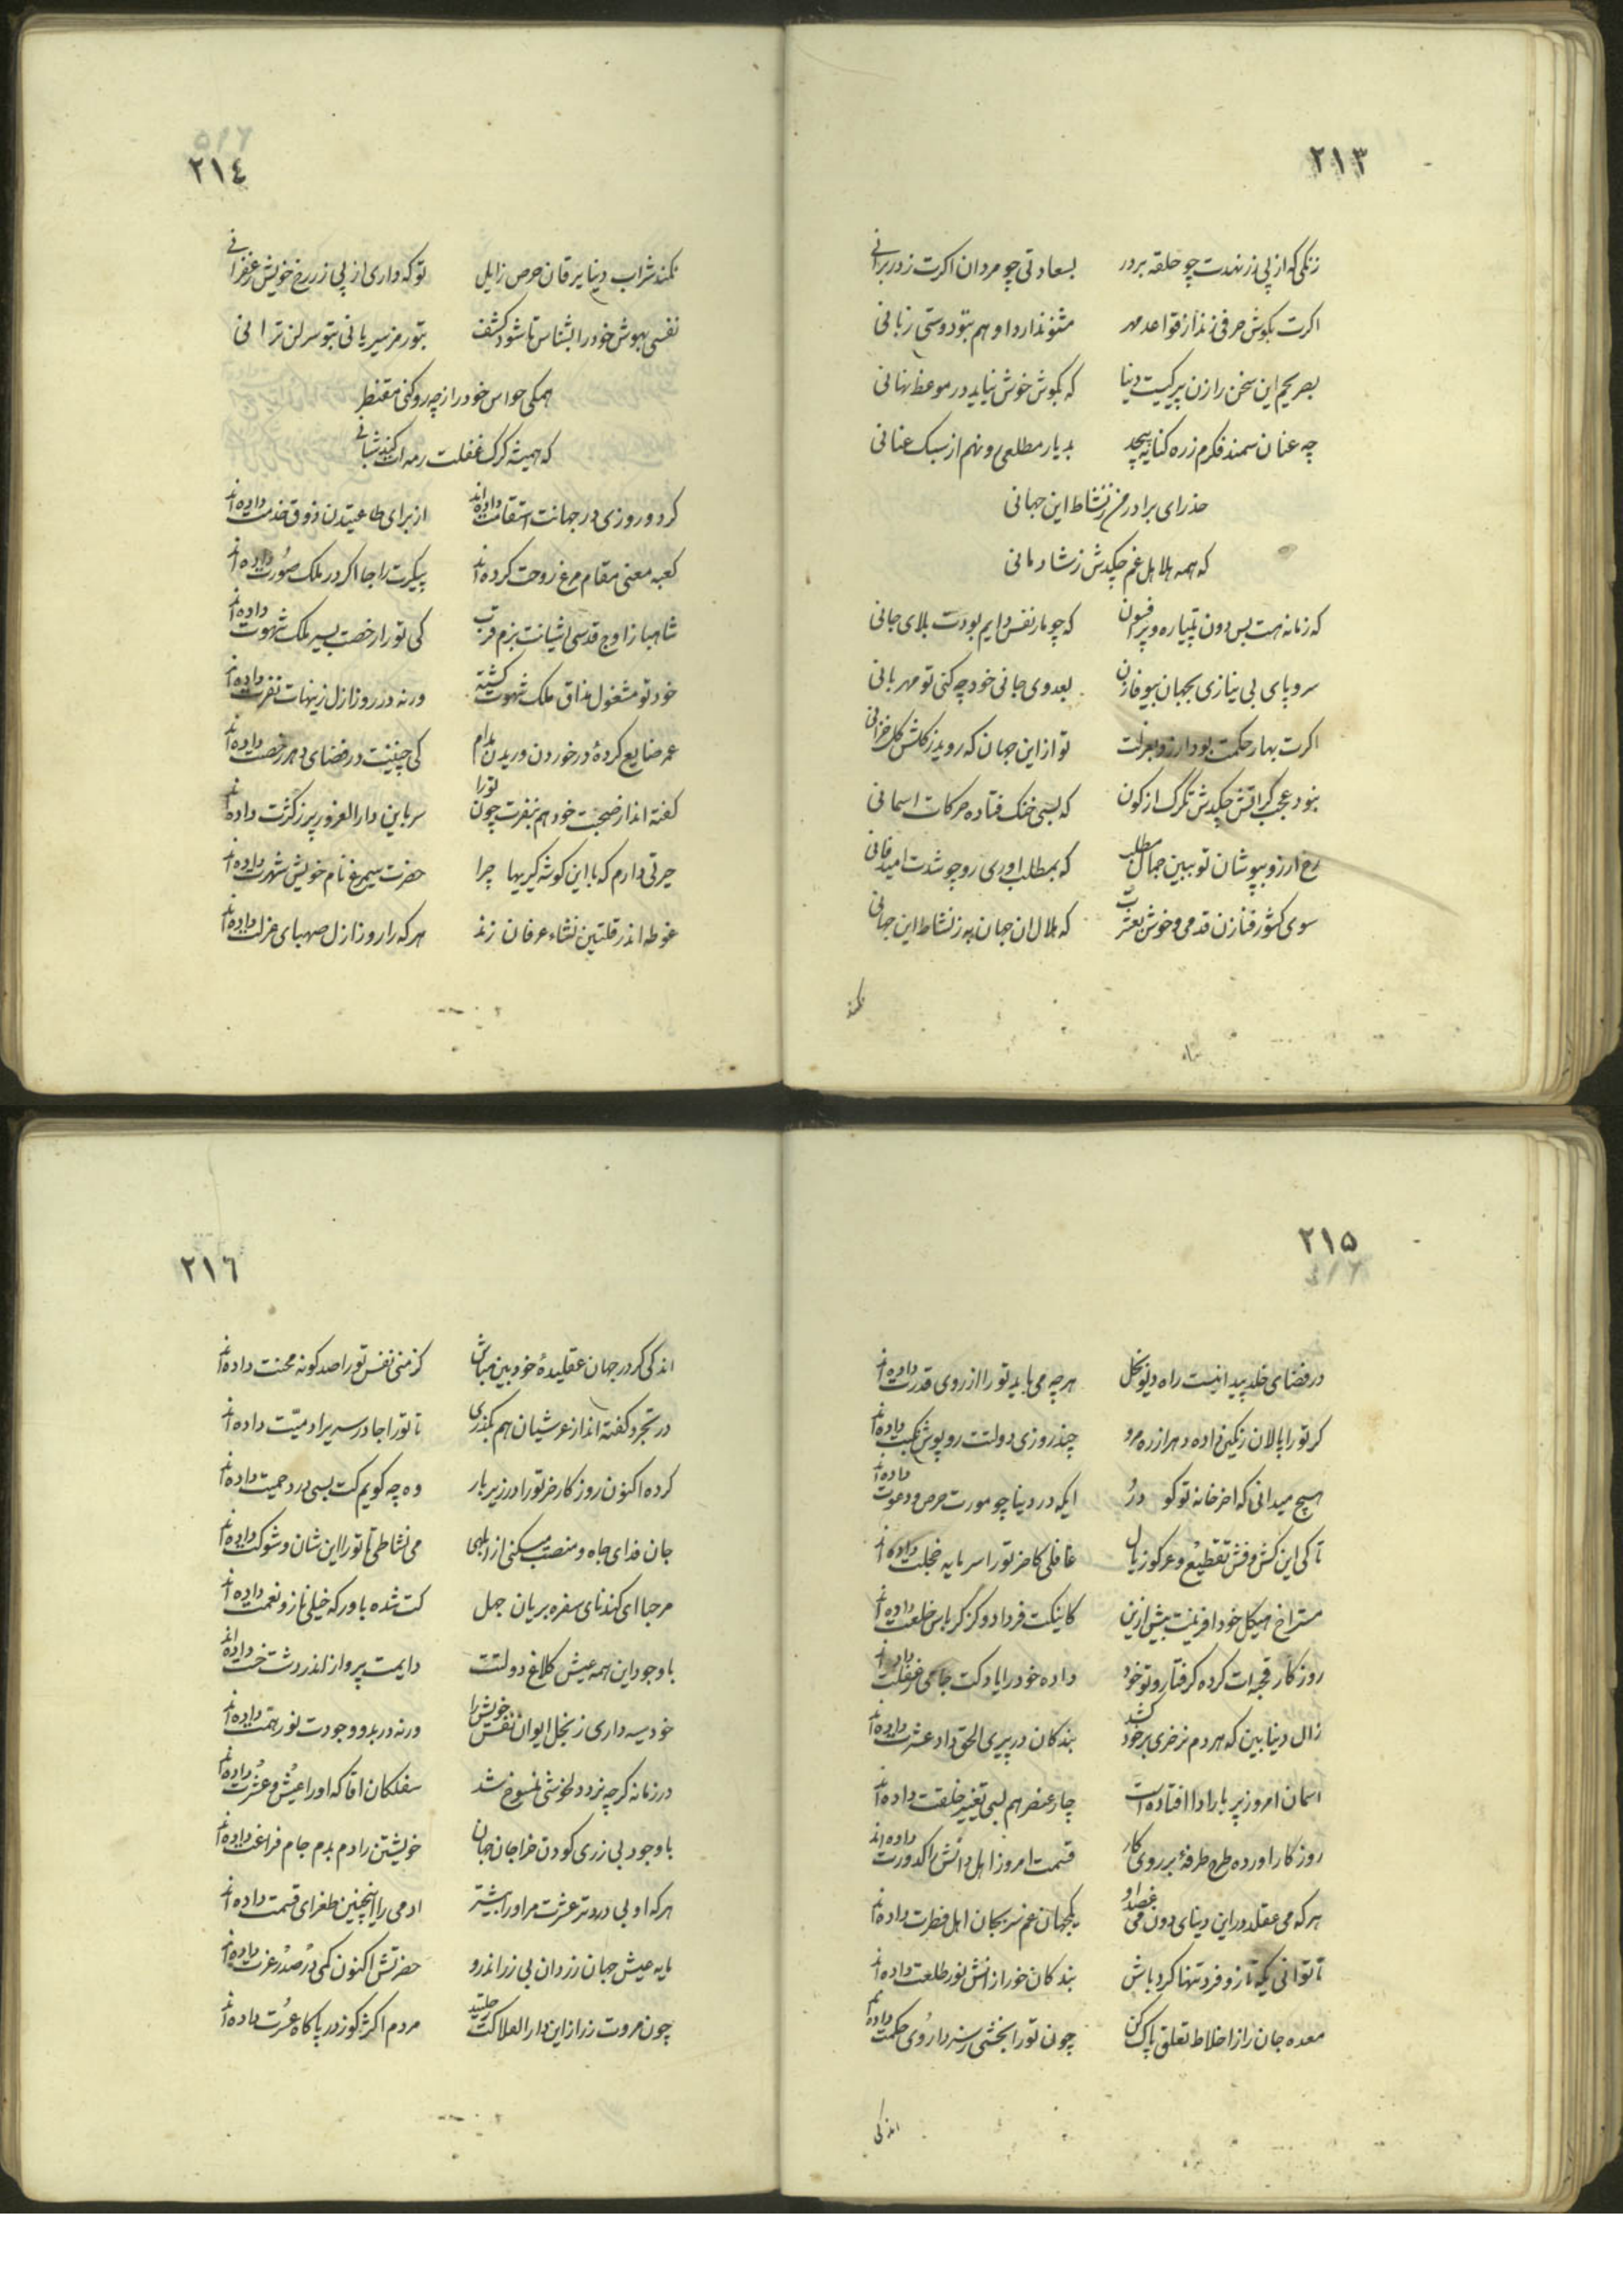 ٢١٣
زنکی که از پی زر نهدت چو حلقه بر در بسعادتی چو مردان اکرت ز در برانی
اکرت بکوش حرفی زند از قواعد مهر مشنو ندارد او هم بتو دوستی زبانی
بصریحم این سخن را زن پیر کیست دنیا که بکوش خوش نیاید در موعظ نهانی
چه عنان سمند فکرم ز ره کنایه پیچد بدیار مطلعی و نهم از سبک عنانی
حذر ای برادر من ز نشاط این جهانی
که همه هلاهل غم چکدش ز شادمانی
که زمانه هست بس دون پتیاره و پر فسون که چو مار نفس دایم بودت بلای جانی
سر و پای بی نیازی بجهان بیوفا زن بعدوی جانی خود چه کنی تو مهربانی
اکرت بهار حکمت بود ارزو بعزلت تو از این جهان که روید ز کلش کل خزانی
نبود عجب کر اتش چکدش تکرک از کون که بسی خنک فتاده حرکات اسمانی
رخ ارزو بپوشان تو ببین جمال مطلب که بمطلب اوری رو چو شدت امید فانی
سوی کشور فنا زن قدمی و خوش بعشرت که ملال ان جهان به ز نشاط این جهانی
نکند
٢١٤
نکند شراب دینا یرقان حرص زایل تو که داری از پی زر رخ خویش زعفرانی
نفسی بهوش خود را بشناس تا شود کشف بتو رمز سیر یانی بتو سر لن ترانی
همکی حواس خود را ز چه رو کنی مقنطر
که همیشه کرک غفلت رمه ات کند شبانی
کر دو روزی در جهانت استقامت داده اند از برای طاعتیدن ذوق خدمت داده اند
کعبه معنی مقام مرغ روحت کرده اند پیکرت را جا اکر در ملک صورت داده اند
شاهباز اوج قدسی اشیانت بزم قرب کی تو را رخصت بسیر ملک شهوت داده اند
خود تو مشغول مذاق ملک شهوت کشته ورنه در روز ازل زینهات نفرت داده اند
عمر ضایع کردهٔ در خوردن و ریدن مدام کی چنینت در فضای دهر رخصت داده اند
کفته اند از صحبت خود هم بنفرت چون تو را سر باین دار الغرور پر ز کثرت داده اند
حیرتی دارم که با این کوشه کیریها چرا حضرت سیمرغ نام خویش شهرت داده اند
غوطه اندر قلتین نشاء عرفان زند هر که را روز ازل صهبای عزلت داده اند
٢١٥
در فضای خلد پیدا نیست راه دیو بخل هر چه می باید تو را از روی قدرت داده اند
کر تو را پالان زنکین داده دهر از ره مرو چند روزی دولتت روپوش نکبت داده اند
هیچ میدانی که اخر خانه تو کو در ایکه در دینا چو مورت حرص و دعوت داده اند
تا کی این کش و فش تقطیع و عر کوزیال غافلی کاخر تو را سرمایه خجلت داده اند
متراخ هیکل خود افرینت بیش ازین کاینکت فردا دو کز کرباس خلعت داده اند
روزکار قحبه ات کرده کرفتار و تو خود داده خود را یادکت جامی ز غفلت داده اند
زال دینا بین که هر دم نر خری بر خود کشد بندکان در پیری الحق داد عشرت داده اند
اسمان امروز پر بار ادا افتاده است چار عنصر هم بسی تغییر خلقت داده اند
روزکار اورده طرح طرفهٔ بر روی کار قسمت امروز اهل دانش را کدورت داده اند
هر که می عقلد در این دینای دون می غصد او یکجهان غم سر بجان اهل فطرت داده اند
تا توانی یکه تاز و فرد تنها کرد باش بندکان خور از انش نور طلعت داده اند
معده جان را ز اخلاط تعلق پاک کن چون تو را بخشی ز داروی حکمت داده اند
اندکی
٢١٦
اندکی کر در جهان عقلیدهٔ خود بین مباش کز منی نفس تو را صد کونه محنت داده اند
در تجرد کفته اند از عرشیان هم بکذری تا تو را جا در سریر ادمیت داده اند
کرده اکنون روزکار خر تو را در زیر بار وه چه کویم کت بسی درد حمیت داده اند
جان فدای جاه و منصب میکنی از ابلهی می نشاطی تا تو را این شان و شوکت داده اند
مرحبا ای کندنای سفره بریان جهل کت شده باور که خیلی ناز و نعمت داده اند
با وجود این همه عیش کلاغ دولتت دایمت پرواز اندر دشت خست داده اند
خود سیه داری ز بخل ایوان نفس خویش را ورنه در بدو وجودت نور همت داده اند
در زمانه کر چه نزد دلخوشی منسوخ شد سفلکان اقا که او را عیش و عشرت داده اند
با وجود بی زری کودن خراجان جهان خویشتن را دم بدم جام فراغت داده اند
هر که او بی درد تر عشرت مر او را بیشتر ادمی را اینچنین طغرای قسمت داده اند
مایه عیش جهان زر دان بی زر اندرو حضرتش اکنون کمی در صدر عزت داده اند
چون مروت زر از این دار العلاکت جلتید مردم اکثر کوز در پاکاه عسرت داده اند